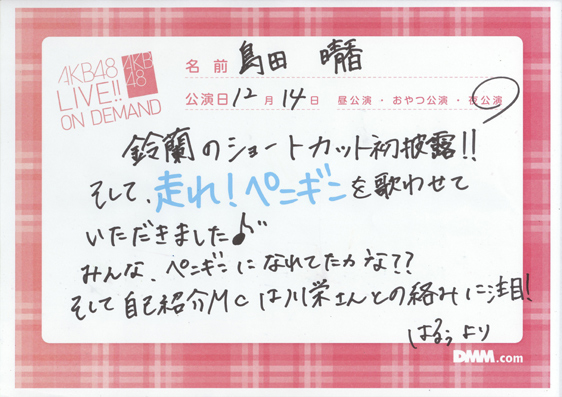 AKB48
LIVE!!
ON DEMAND
AKB
48
名前 島田 晴香
公演日 12月14日 昼公演・おやつ公演・夜公演
鈴蘭のショートカット初披露!!
そして、走れ!ペンギンを歌わせて
いただきました♪
みんな、ペンギンになれてたカな??
そして自己紹介MCは川栄さんとの絡みに注目!
はるぅより
DMM.com